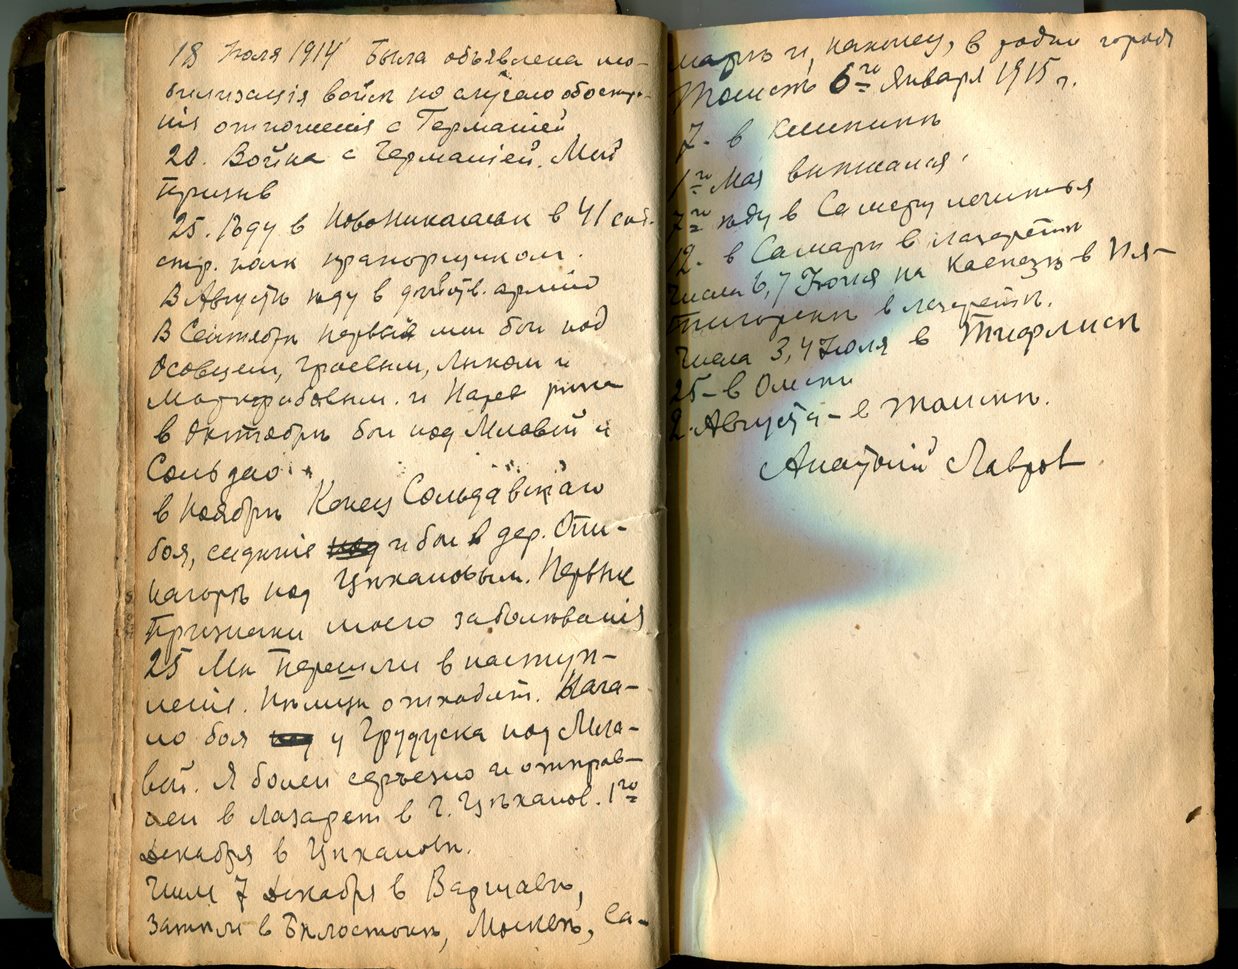 18 Іюля 1914 Была объявлена мо-
билизація войск по случаю обостре-
нія отношенія с Германіей
20. Война с Германіей. Мой
призыв
25. Ѣду в Новониколаевск в 41 сиб.
стр. полк прапорщиком.
В Августѣ ѣду в дѣйств. армію
В Сентябрѣ первый мои бои под
Осовцем, Граевым, Лыком и
Маркграбовым. и Нарев рѣка
в Октябрѣ бои под Млавой и
Сольдао
в Ноябрѣ Конец Сольдавскаго
боя, сидѣніе и бои в дер. Опи-
нагорѣ под Цѣхановым. Первые
признаки моего заболѣванія
25 Мы перешли в наступ-
леніе. Нѣмцы отходят. Нача-
ло боя у Грудуска под Мла-
вой. Я болен серьезно и отправ-
лен в лазарет в г. Цѣханов. 1го
Декабря в Цѣхановѣ.
Числ 7 Декабря в Варшавѣ,
затѣм в Бѣлостокѣ, Москвѣ, Са-
марѣ и, наконец, в родном городѣ
Томскѣ 6го Января 1915 г.
7- в клиникѣ
1го Мая выписался.
7го ѣду в Самару лечиться
12- в Самарѣ в лазаретѣ
Числа 6, 7 Іюня на Кавказѣ в Пя-
тигорскѣ в лазаретѣ.
Числа 3, 4 Іюля в Тифлисѣ
25- в Омскѣ
2 Августа- в Томскѣ.
Анатолій Лавров